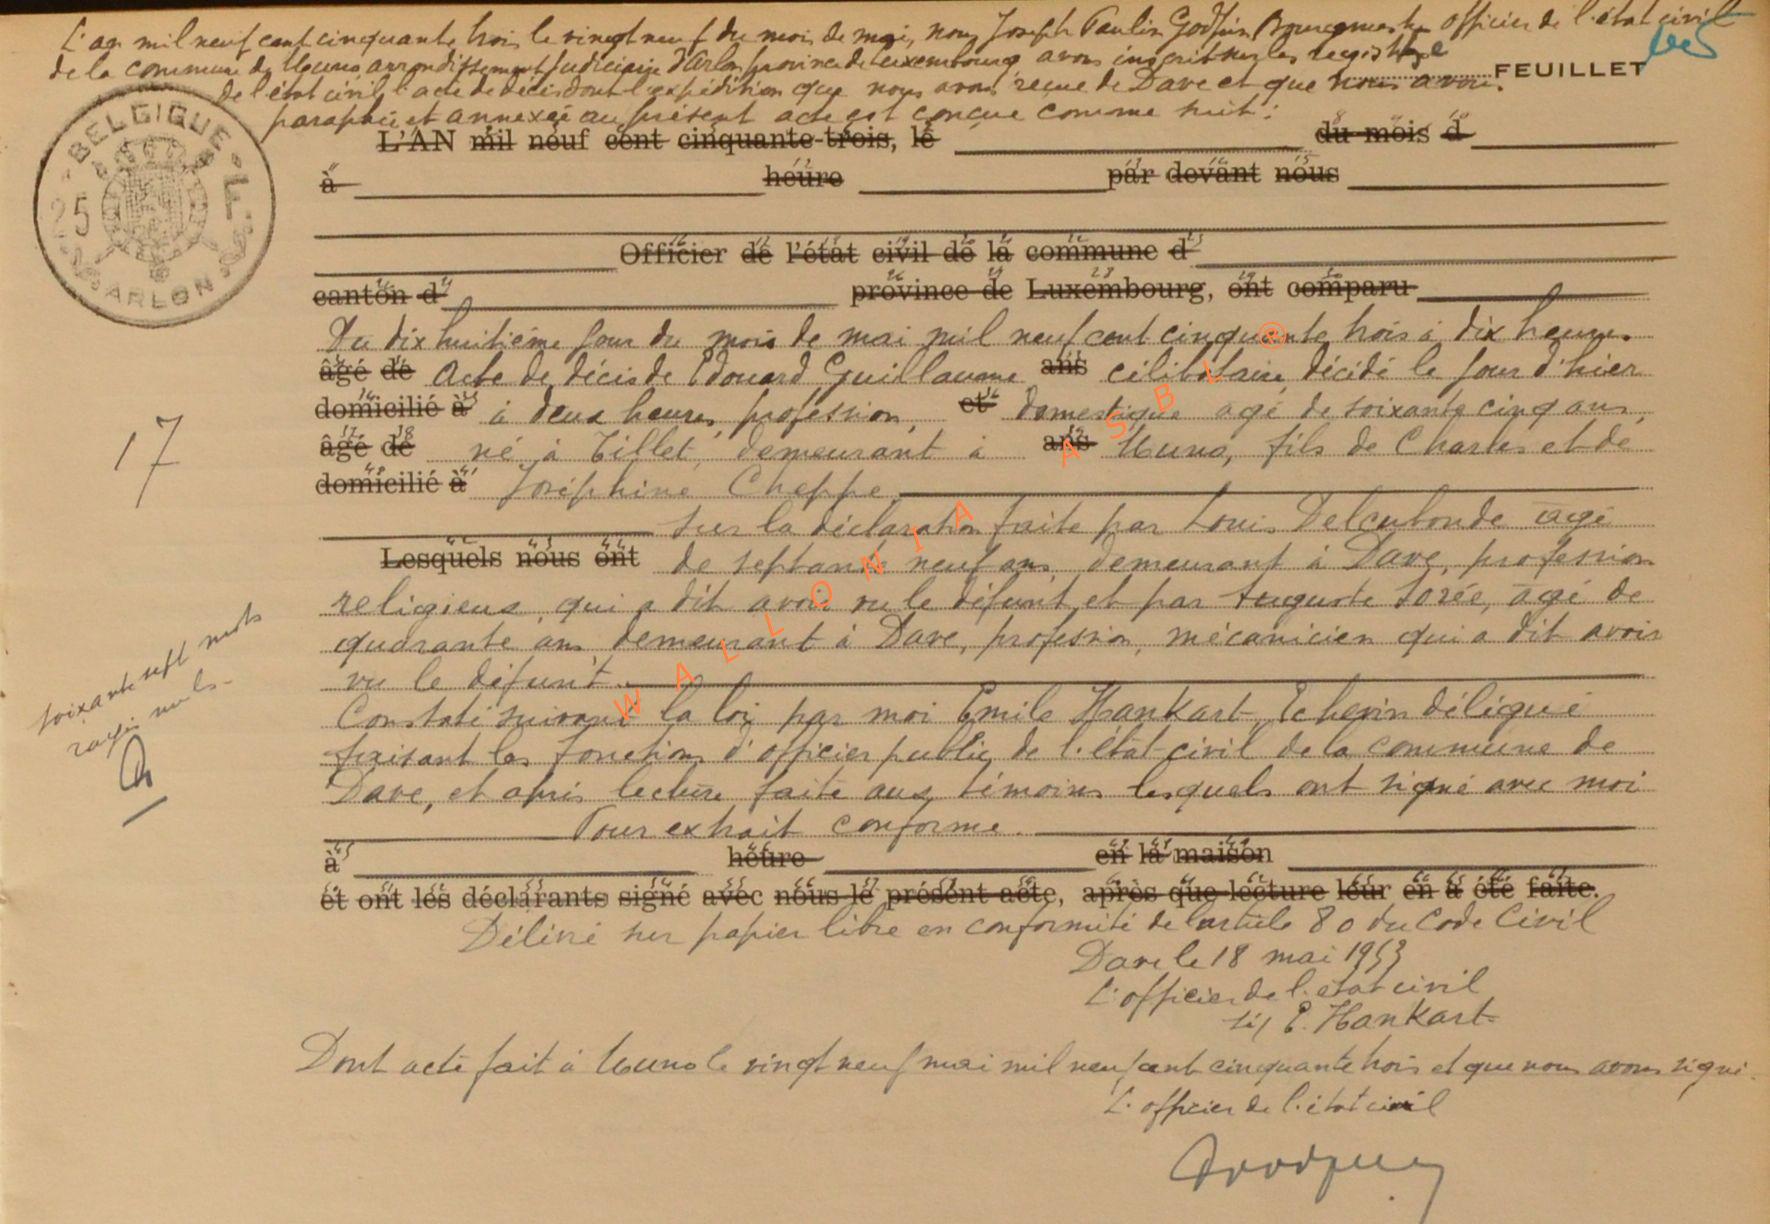 L'an mil neuf cent cinquante trois le vingt neuf du mois de mai, nous Joseph Paulin Godfrin Bourgmestre officier de l'état civil
de la commune de Muno arrondissement judiciaire d'Arlon province de Luxembourg avons inscrit sur les registre
FEUILLET
de l'état civil l'acte de décès dont l'expédition que nous avons reçue de Dave et que nous avons
paraphée et annexée au présent acte est conçue comme suit :
BELGIQUE
25 F.
ARLON
L'AN mil neuf cent cinquante-trois, le du mois d
à heure par devant nous
Officier de l'état civil de la commune d
canton d province de Luxembourg, ont comparu
Du dix huitième jour du mois de mai mil neuf cent cinquante trois à dix heures
âgé de Acte de décès de Edouard Guillaume ans célibataire, décédé le jour d'hier
domicilié à à deux heures, profession, et domestique agé de soixante cinq ans,
17
âgé de né à Tillet, demeurant à ans Muno, fils de Charles et de
domicilié à Joséphine Cheppe
sur la déclaration faite par Louis âgé
Lesquels nous ont de septante neuf ans, demeurant à Dave, profession
religieux, qui a dit avoir vu le défunt et par Auguste Sorée, âgé de
quarante ans demeurant à Dave, profession, mécanicien qui a dit avoir
vu le défunt.
soixante sept mots
rayés nuls
Constaté suivant la loi par moi Emile Hankart, Echevin délégué
faisant les fonctions d'officier public de l'état-civil de la commune de
Dave, et après lecture faite aux témoins lesquels ont signé avec moi
Pour extrait conforme.
à heure en la maison
et ont les déclarants signé avec nous le présent acte, après que lecture leur en a été faite.
Délivré sur papier libre en conformité de l'article 80 du Code Civil
Dave le 18 mai 1953
L'officier de l'etat civil
E. Hankart
Dont acte fait à Muno le vingt neuf mai mil neuf cent cinquante trois et que nous avons signé.
L'officier de l'état civil
WALLONIA ASBL ®